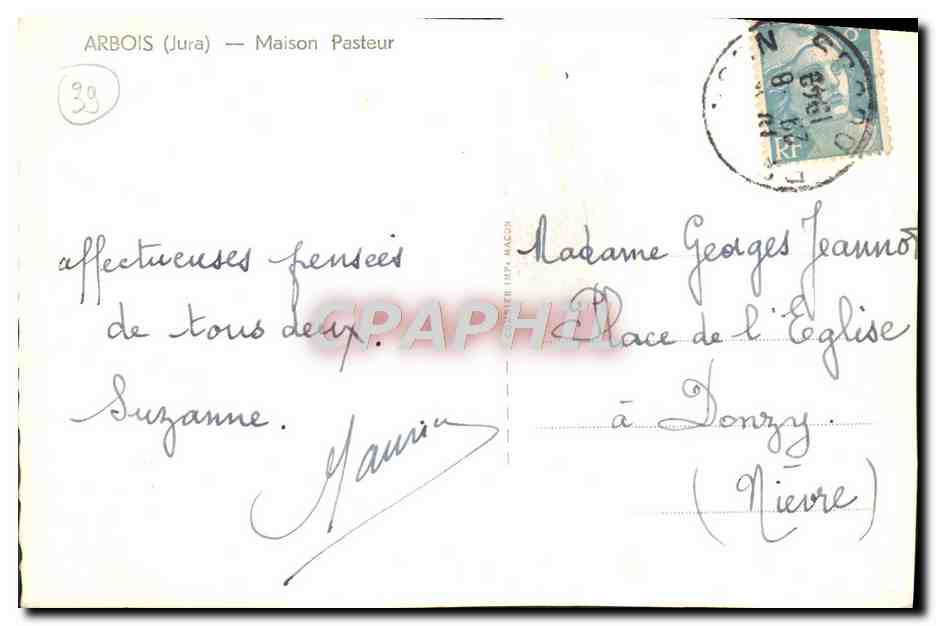 ARBOIS (Jura) — Maison Pasteur
39
affectueuses pensées
de tous deux.
Suzanne.
Maurice
COMBIER IMP. MACON
CPAPHIL
RF
1948
Madame Georges Jeannot
Place de l'Eglise
à Donzy.
(Nièvre)